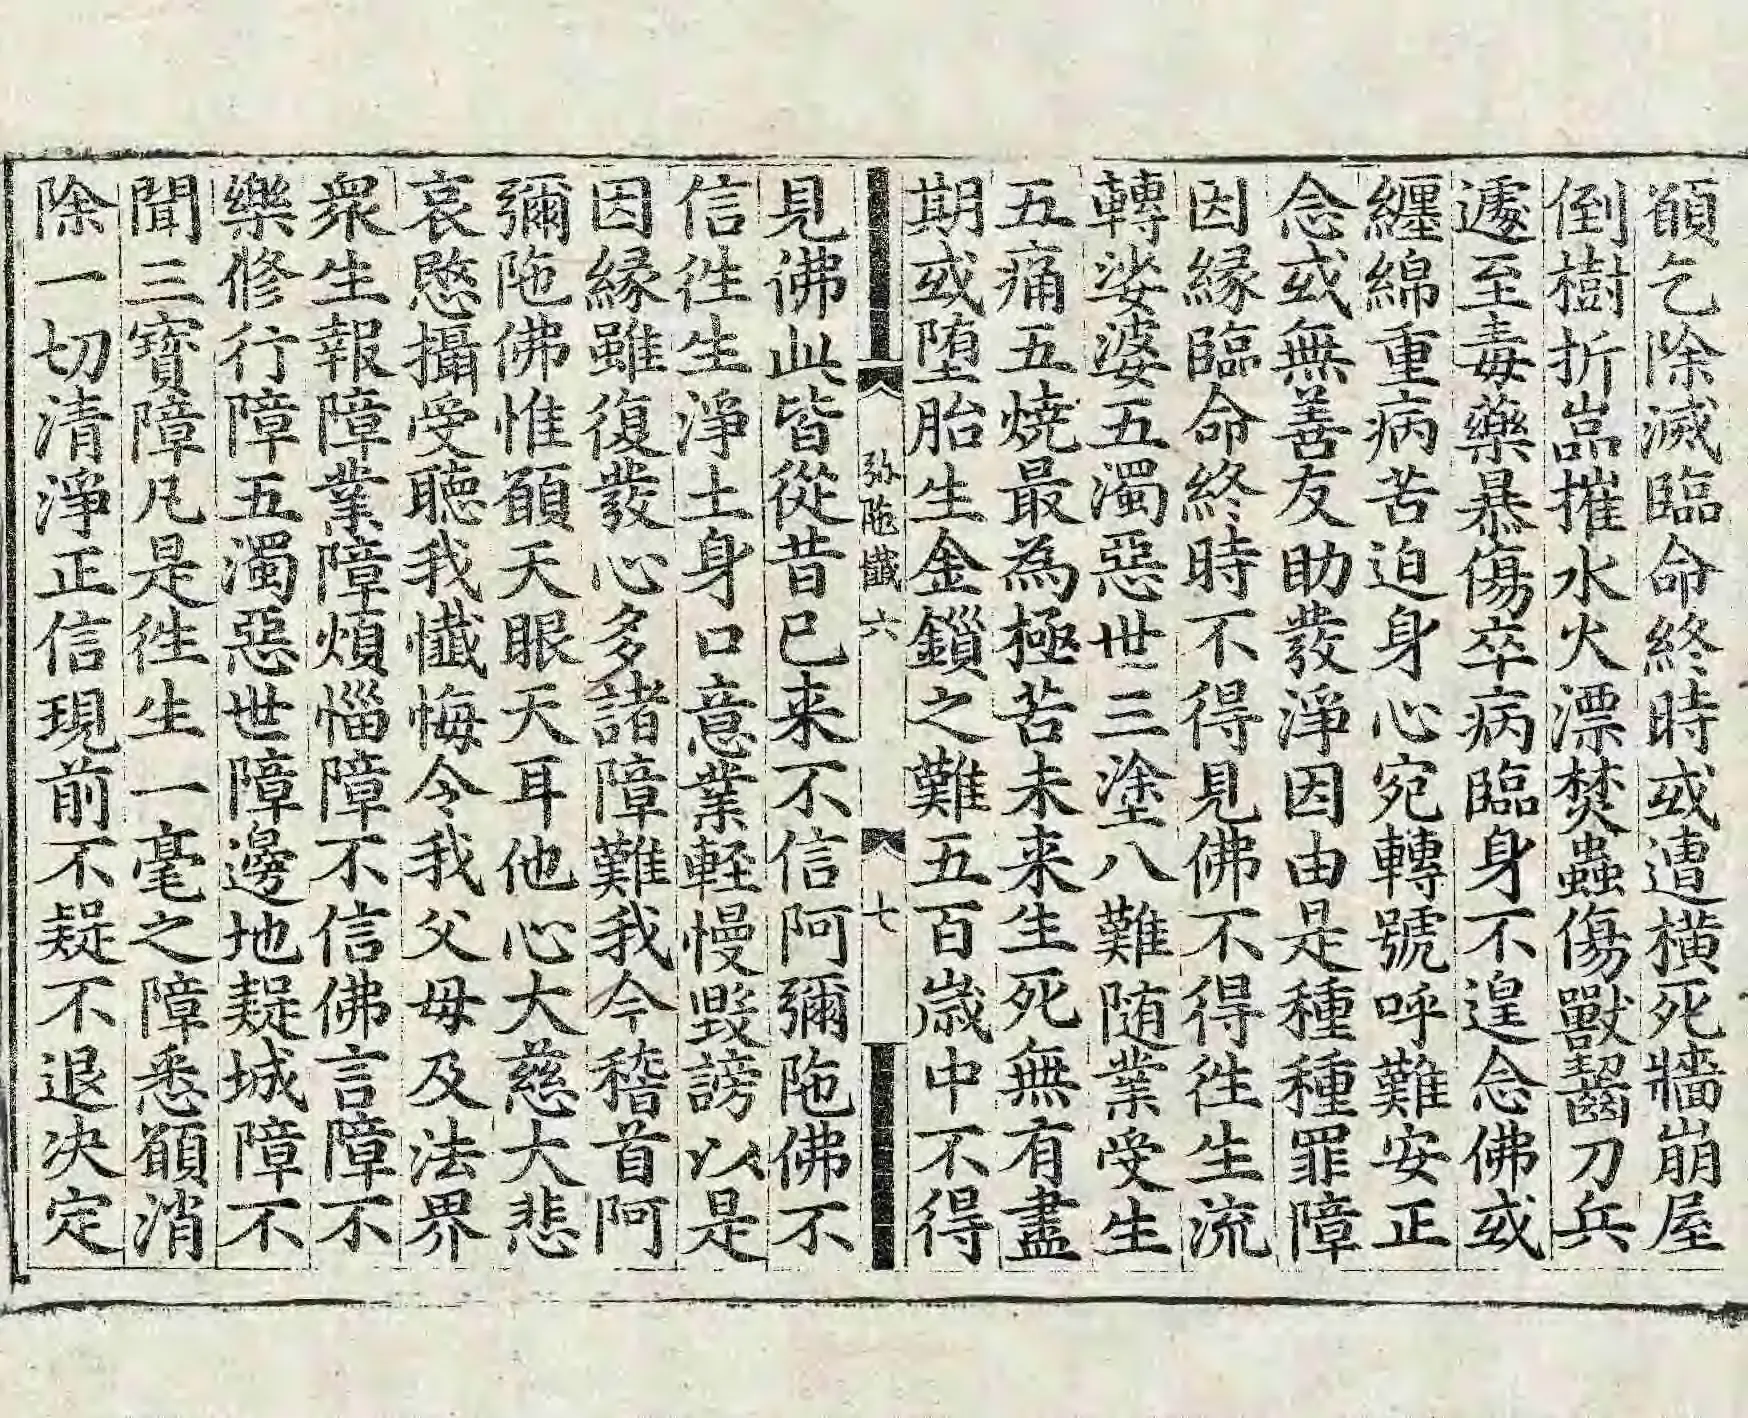 顖乞除滅臨命終時或遭橫死牆崩屋
倒樹折嵓摧水火漂焚蟲傷獸齧刀兵
遽至毒藥暴傷卒病臨身不遑念佛或
纏綿重病苦迫身心宛轉號呼難安正
念或無善友助發淨因由是種種罪障
因緣臨命終時不得見佛不得徃生流
轉娑婆五濁惡世三塗八難随業受生
五痛五燒最為極苦未来生死無有盡
期或堕胎生金鎻之難五百歲中不得
弥陁懴六
七
見佛此皆從昔已来不信阿彌陁佛不
信徃生淨土身口意業軽慢毀謗以是
因緣雖復發心多諸障難我今稽首阿
彌陁佛惟顖天眼天耳他心大慈大悲
哀愍攝受聽我懴悔令我父母及法界
衆生報障業障煩惱障不信佛言障不
樂修行障五濁惡世障邊地疑城障不
聞三寶障凡是徃生一毫之障悉顖消
除一切清淨正信現前不疑不退决定